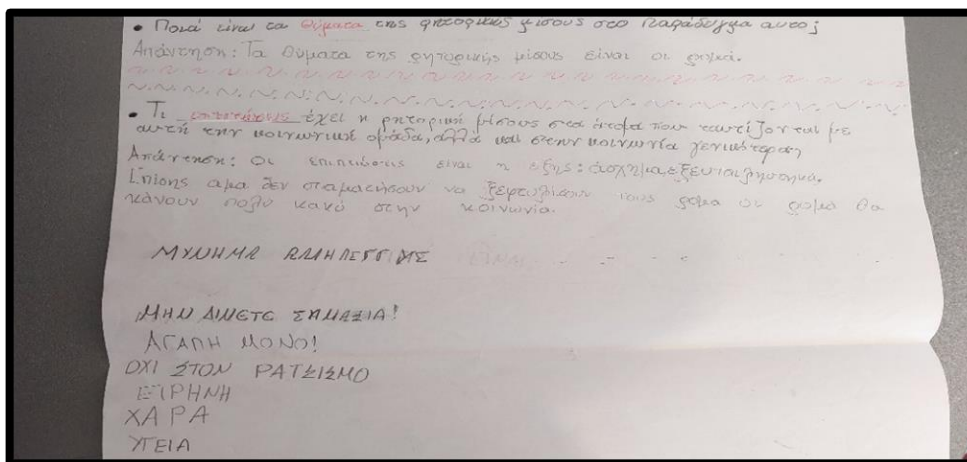 • Ποιά είναι τα θύματα της ρητορικής μίσους στο παράδειγμα αυτό;
Απάντηση: Τα θύματα της ρητορικής μίσους είναι οι
• Τι επιπτώσεις έχει η ρητορική μίσους στα άτομα που ταυτίζονται με
αυτή την κοινωνική ομάδα, αλλά και στην κοινωνία γενικότερα;
Απάντηση: Οι επιπτώσεις είναι η εξής: άσχημα,
Επίσης αμα δεν σταματήσουν να ξεφτυλίζουν τους ρομα οι ρομα θα
κάνουν πολύ κακό στην κοινωνία.
ΜΥΝΗΜΑ ΑΛΛΗΛΕΓΓΙΗΣ
ΜΗΝ ΔΙΝΕΤΕ ΣΗΜΑΣΙΑ!
ΑΓΑΠΗ ΜΟΝΟ!
ΟΧΙ ΣΤΟΝ ΡΑΤΣΙΣΜΟ
ΕΙΡΗΝΗ
ΧΑΡΑ
ΥΓΕΙΑ